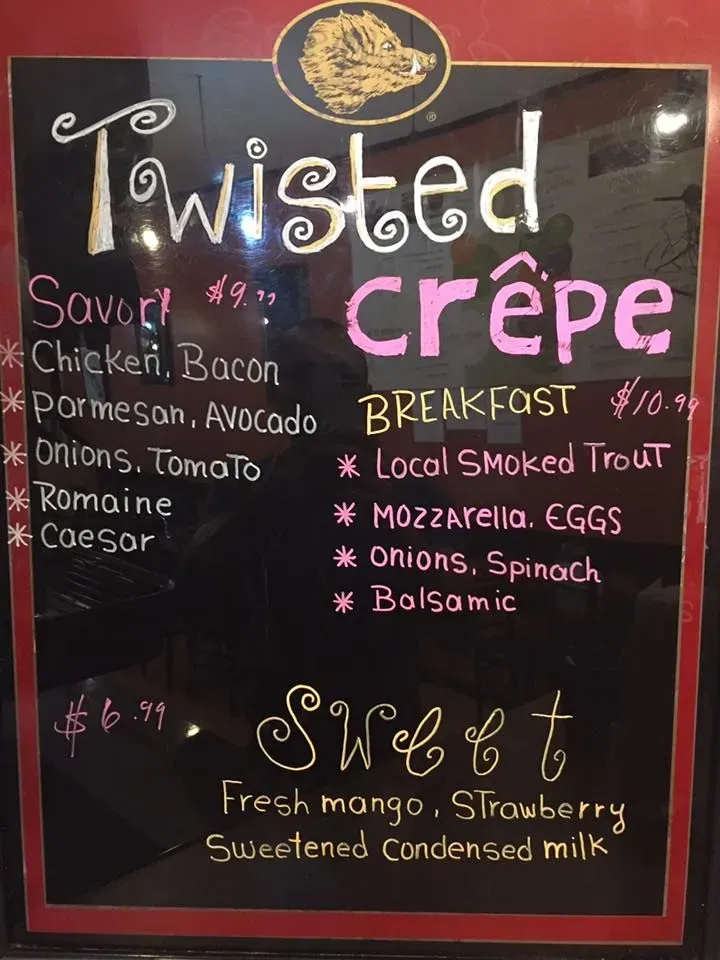 Twisted
crêpe
Savory $9.99
* Chicken, Bacon
* Parmesan, Avocado
* Onions, Tomato
* Romaine
* Caesar
BREAKFAST $10.99
* Local Smoked Trout
* Mozzarella, EGGS
* Onions, Spinach
* Balsamic
$6.99
Sweet
Fresh mango, Strawberry
Sweetened Condensed milk